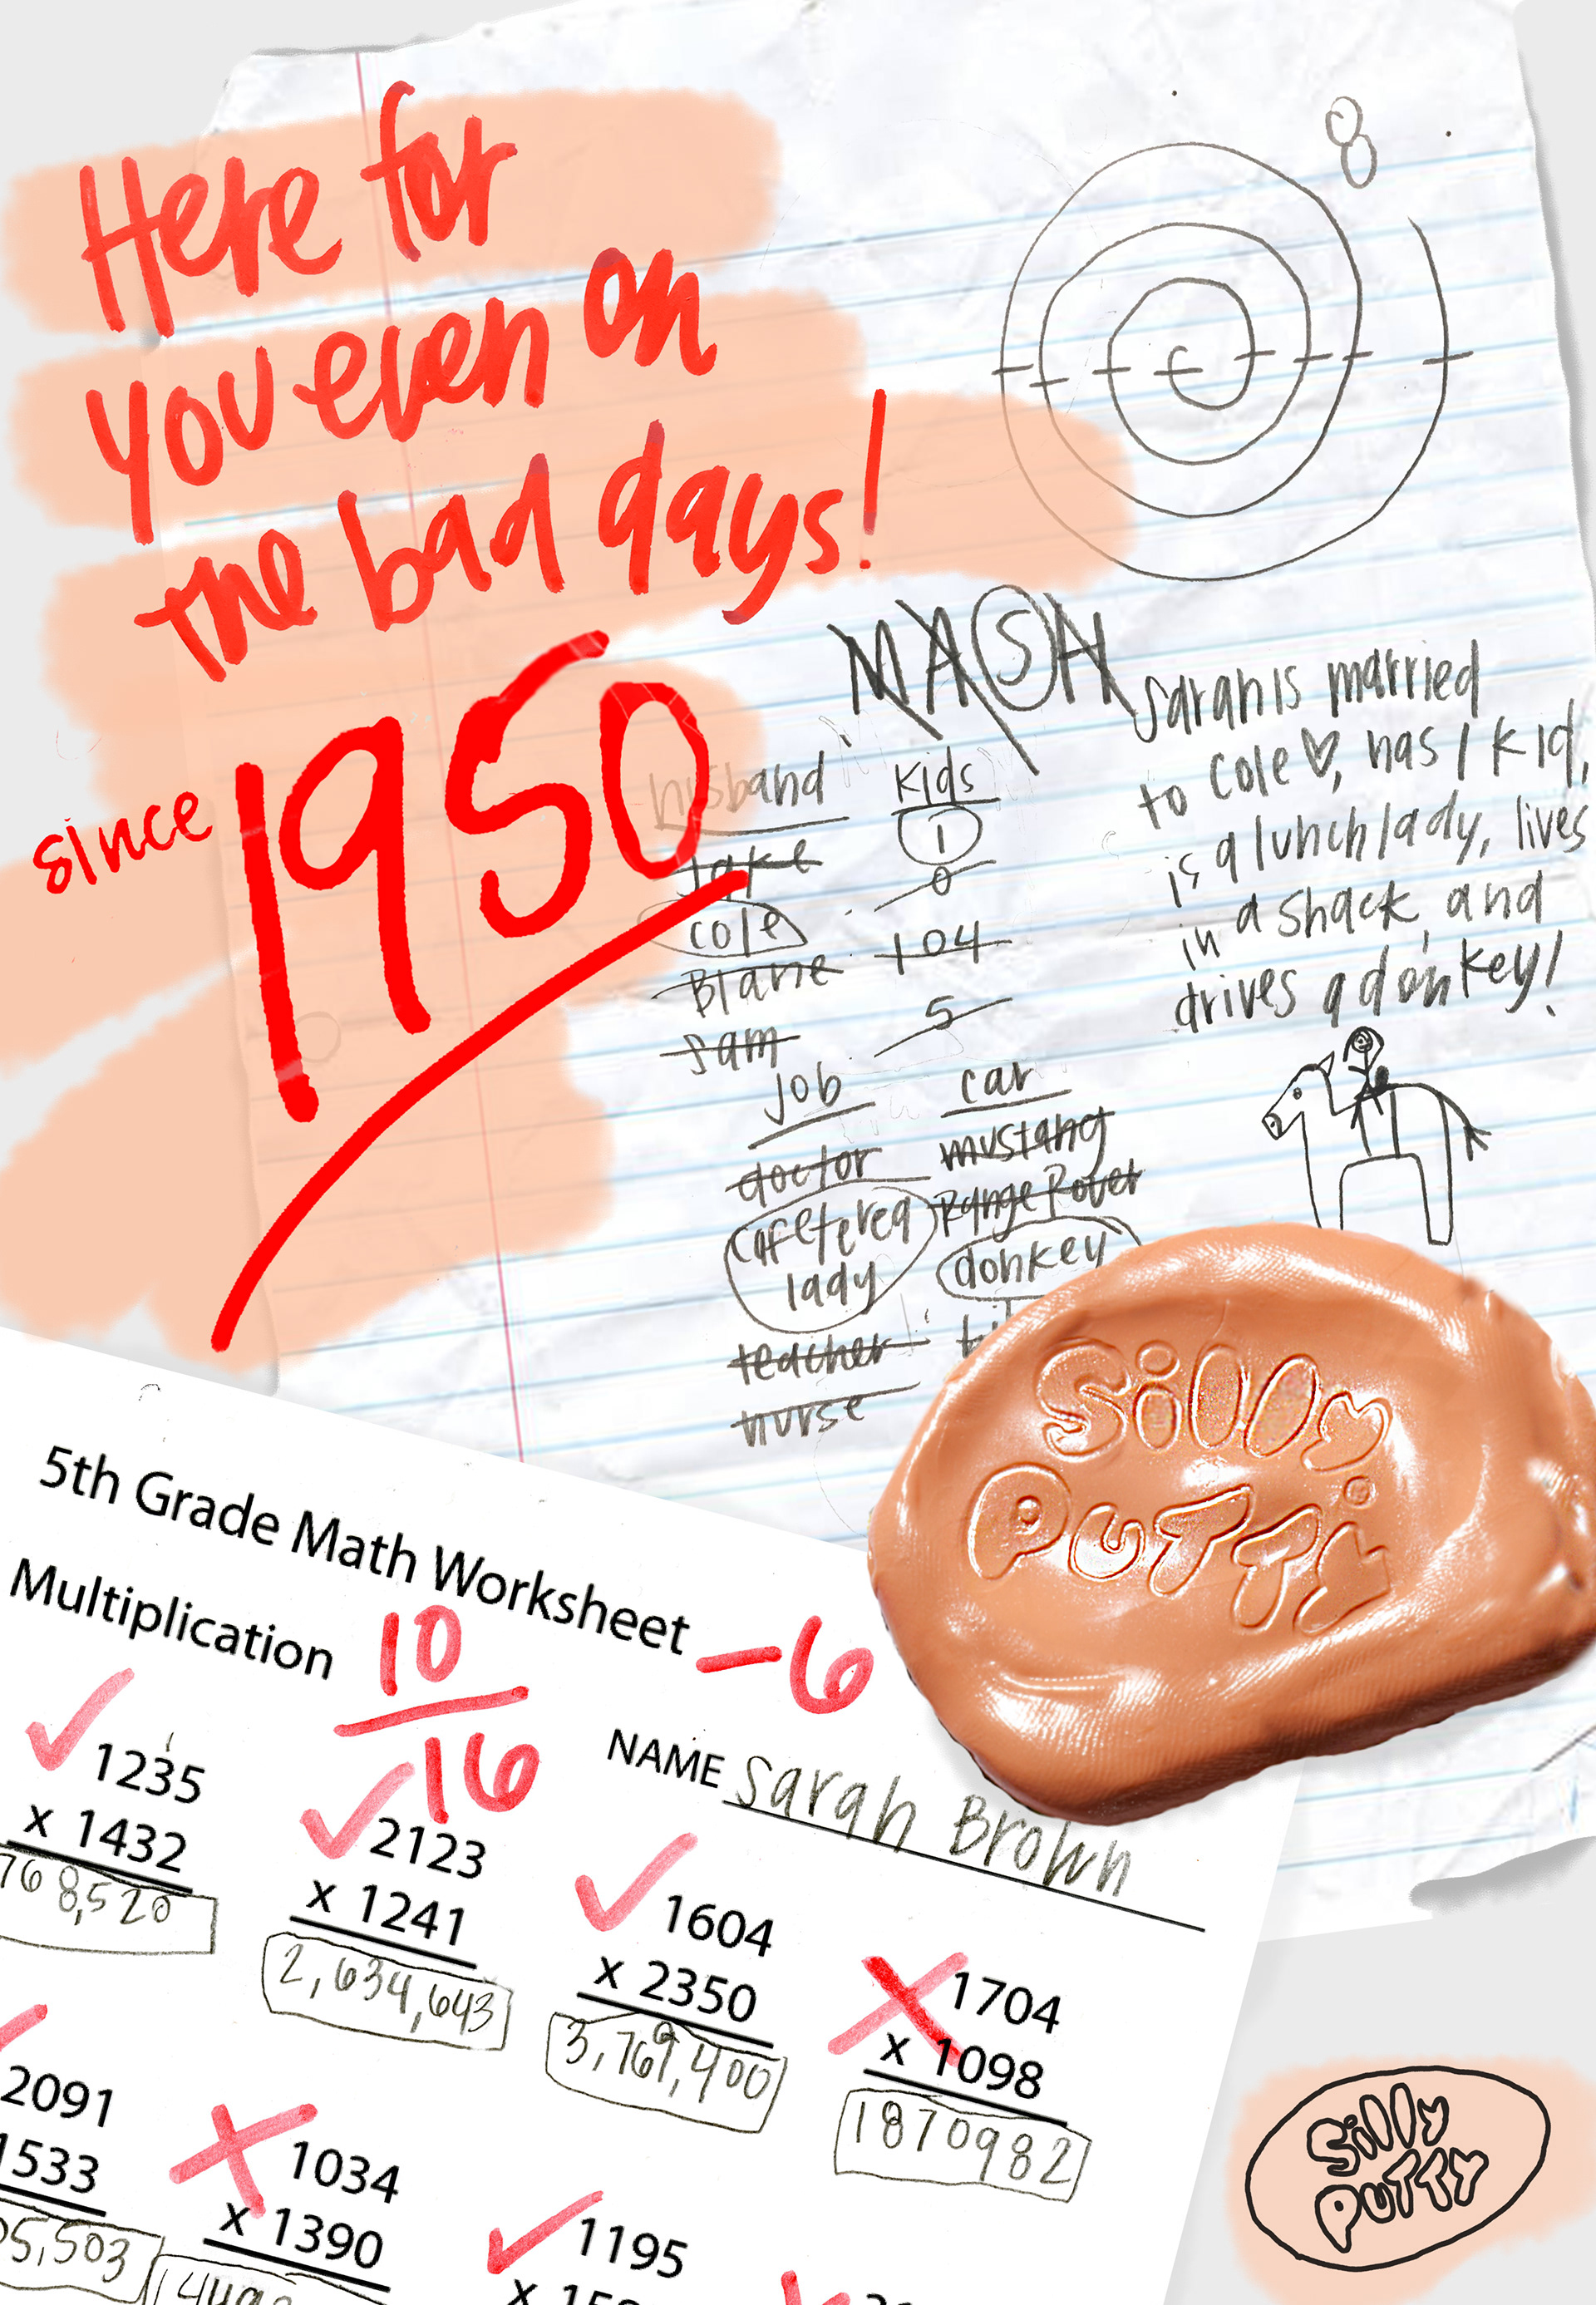 Here for
you even on
the bad days!
since 1950
8
MASH
husband
Jake
cole
Blane
sam
kids
1
0
104
5
job
doctor
cafeterea
lady
teacher
nurse
car
mustang
Range Rover
donkey
Sarah is married
to cole ♡, has 1 kid,
is a lunch lady, lives
in a shack, and
drives a donkey!
Silly
Putty
5th Grade Math Worksheet
-6
Multiplication
10
16
NAME Sarah Brown
1235
x 1432
768,520
2123
x 1241
2,634,643
1604
x 2350
3,769,400
1704
x 1098
1870982
2091
1533
5,503
1034
x 1390
1195
Silly
Putty